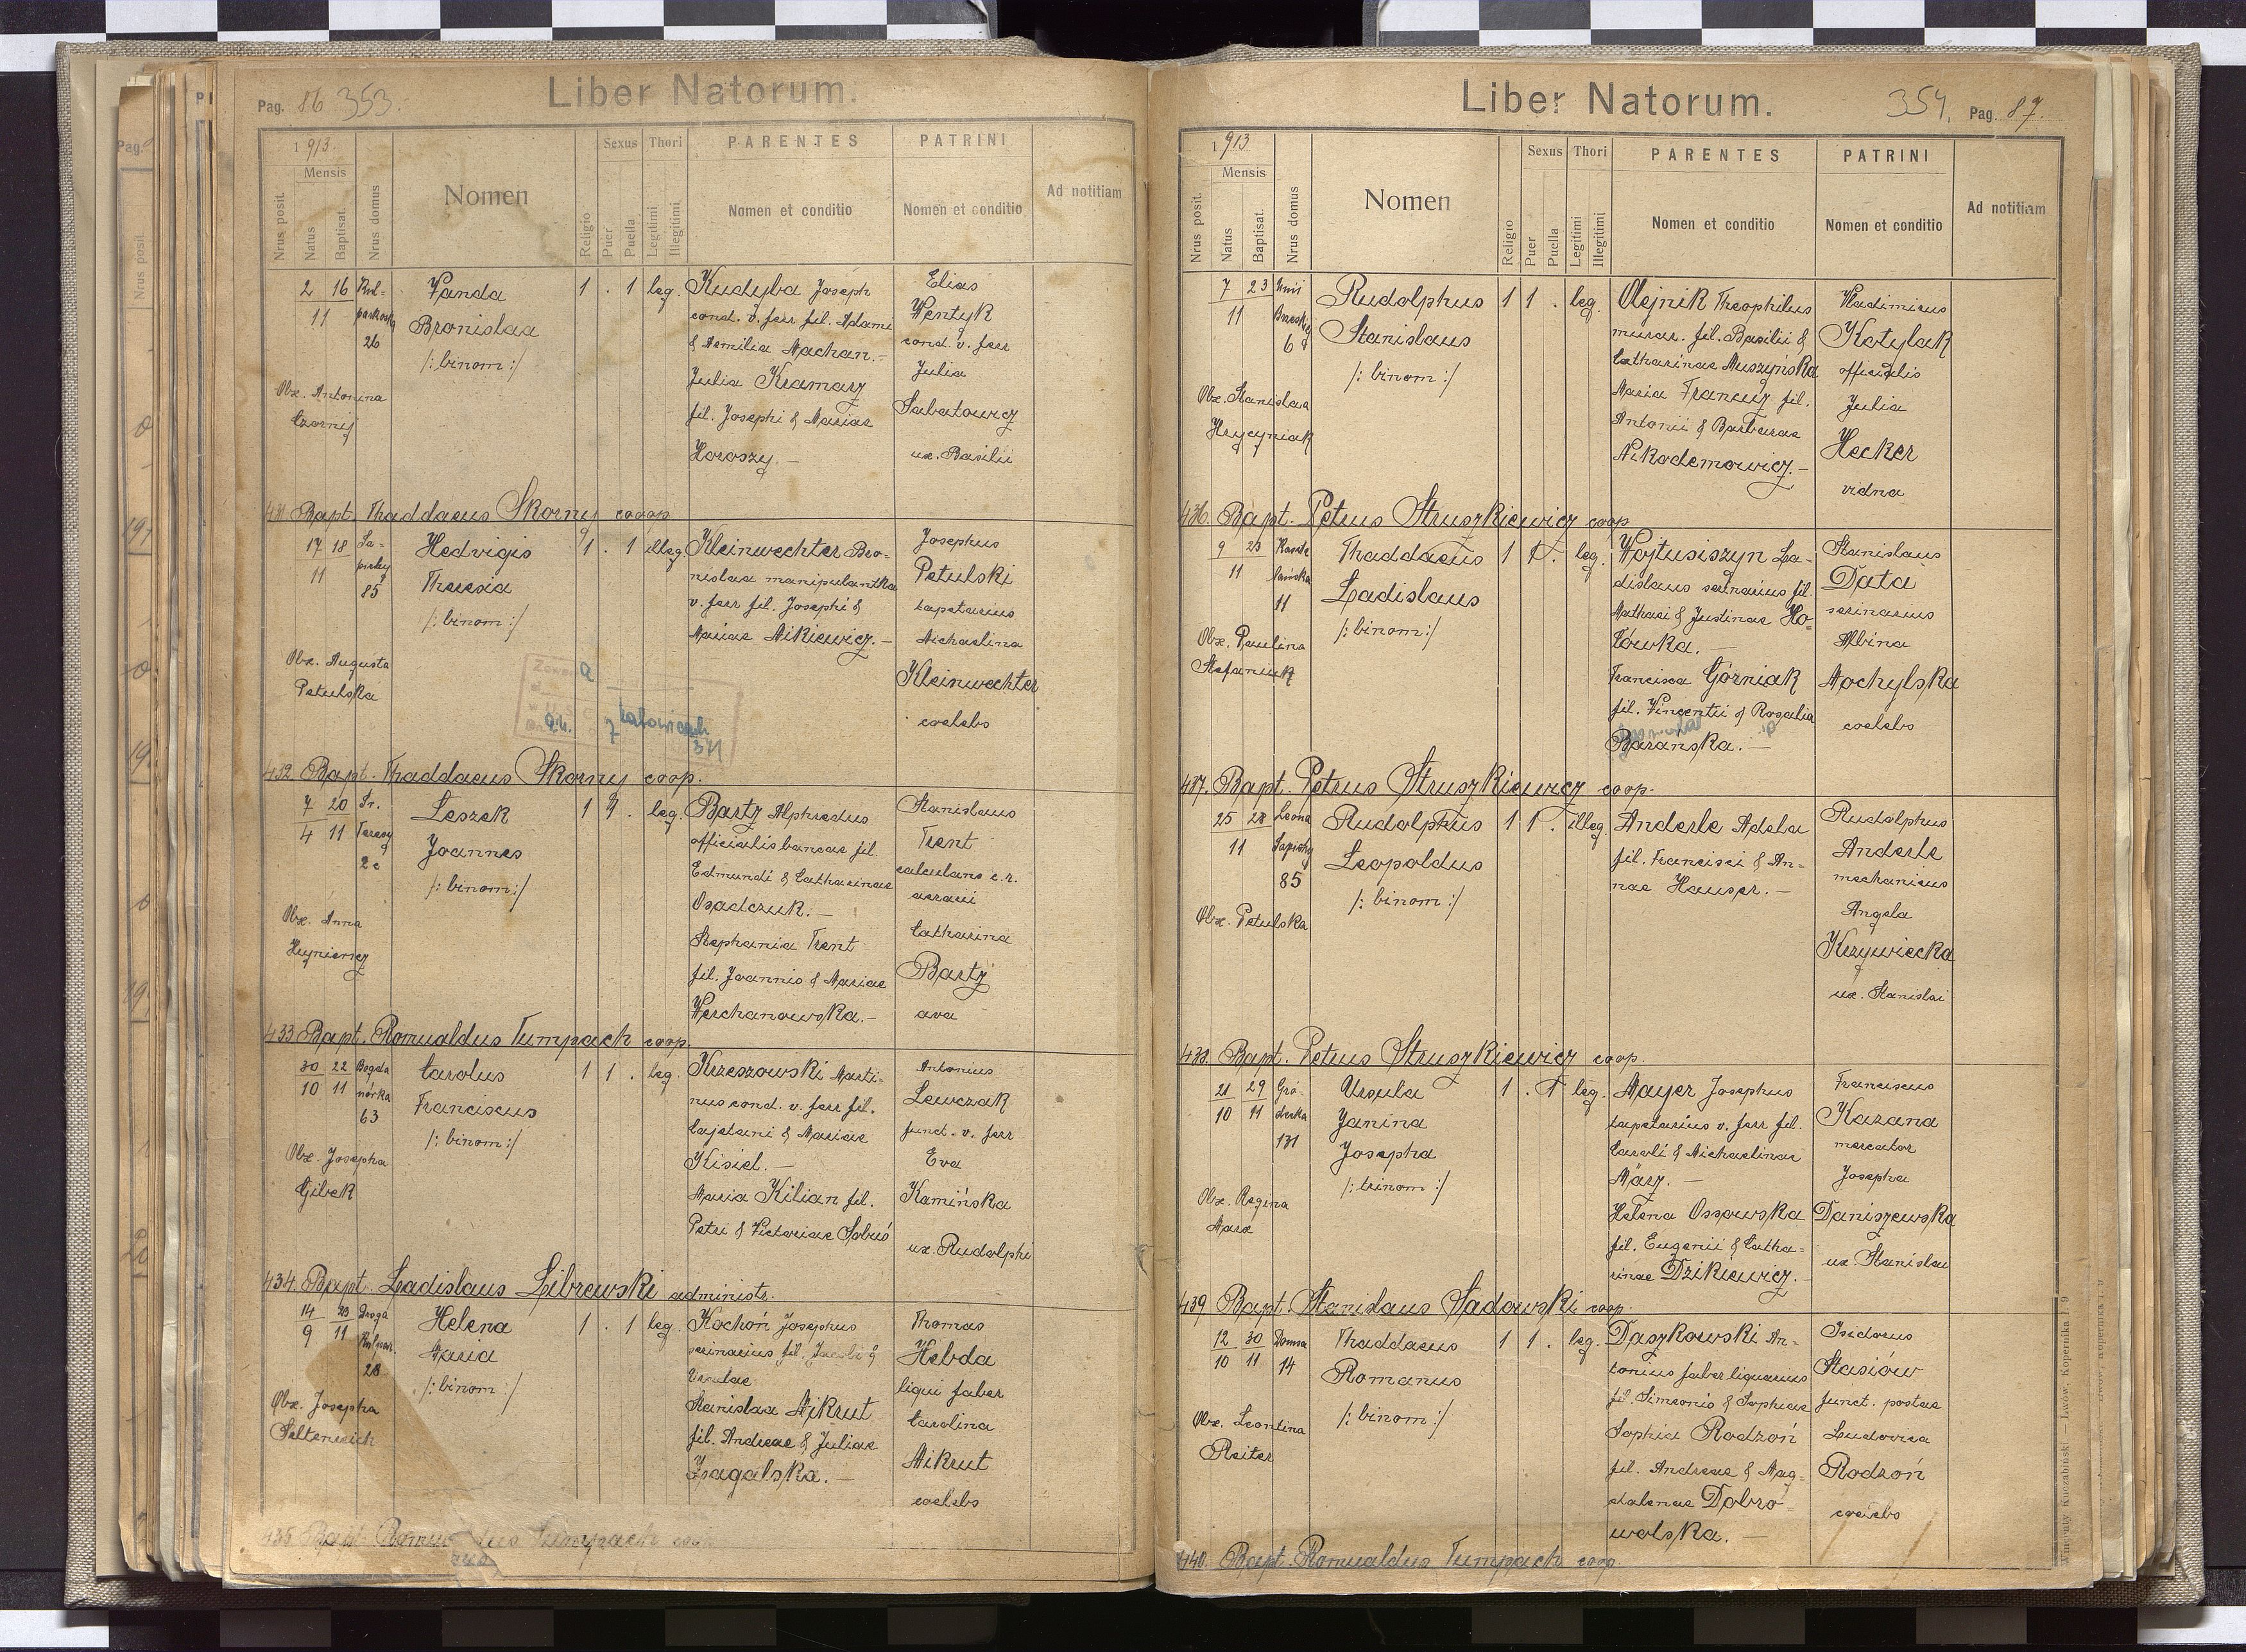 Pag. 86 353.
Liber Natorum.
1913.
Nrus posit.
Mensis
Natus
Baptisat.
Nrus domus
Nomen
Religio
Sexus
Puer
Puella
Thori
Legitimi
Illegitimi
PARENTES
Nomen et conditio
PATRINI
Nomen et conditio
Ad notitiam
2 16
11
26
Vanda
Bronislaa
/: binom :/
1 . 1 leg.
Obx. Antonina
Czornij
Kudyba Joseph
cond. v. ferr fil. Adami
& Aemilia Machan.—
Julia Kramarz
fil. Josephi & Mariae
Horoszy.—
Elias
Wentyk
cond. v. ferr
Julia
Sabatowicz
ux. Basilii
431 Bapt. Thaddaeus Skorny cooop
17 18 Sa-
11 piehy
85
Hedvigis
Theresia
/: binom :/
1 . 1 illeg.
Obx. Augusta
Petulska
Kleinwechter Bro-
nislaa manipulantka
v. ferr fil. Josephi &
Mariae Mikiewicz.—
Josephus
Petulski
tapetarius
Michaelina
Kleinwechter
coelebs
432 Bapt. Thaddaeus Skorny coop.
7 20 Sr.
4 11 Teresy
2c
Leszek
Joannes
/: binom :/
1 1 . leg.
Obx. Anna
Bartz Alphredus
officialis bancae fil.
Edmundi & Catharinae
Osadczuk.—
Stephania Trent
fil. Joannis & Mariae
Werchanowska.—
Stanislaus
Trent
calculans c.r.
aerarii
Catharina
Bartz
ava
433 Bapt. Romualdus Tumpach coop.
30 22 Bogda
10 11 nórka
63
Carolus
Franciscus
/: binom :/
1 1 . leg.
Obx. Josepha
Gibek
Krzeszowski Marti-
nus cond. v. ferr fil.
Cajetani & Mariae
Kisiel.—
Maria Kilian fil.
Petri & Victoriae
Antonius
Lewczak
funct. v. ferr
Eva
Kamińska
ux. Rudolphi
434. Bapt. Ladislaus Librewski administr.
14 23 Droga
9 11 Kulpar.
28
Helena
Maria
/: binom :/
1 . 1 leg.
Obx. Josepha
Seltenreich
Kochoń Josephus
serinarius fil. Jacobi &
Ursulae
Stanislaa Mikrut
fil. Andreae & Juliae
Zsagalska.—
Thomas
Hebda
ligni faber
Carolina
Mikrut
coelebs
435 Bapt. Romualdus Tumpach coop
Liber Natorum.
354. Pag. 87.
1913
Nrus posit.
Mensis
Natus
Baptisat.
Nrus domus
Nomen
Religio
Sexus
Puer
Puella
Thori
Legitimi
Illegitimi
PARENTES
Nomen et conditio
PATRINI
Nomen et conditio
Ad notitiam
7 23 Unii
11 Brzeskiej
6
Rudolphus
Stanislaus
/: binom :/
1 1 . leg.
Obx. Stanislaa
Hrycyniak
Olejnik Theophilus
murar. fil. Basilii &
Catharinae Muszyńska
Maria Francuz fil.
Antonii & Barbarae
Nikodemowicz.—
Vladimirus
Kotylak
officialis
Julia
Hecker
vidna
436. Bapt. Petrus Struszkiewicz coop
9 23
11
11
Thaddaeus
Ladislaus
/: binom :/
1 1 . leg.
Obx. Paulina
Stefaniuk
Wojtusiszyn La-
dislaus serinarius fil.
Mathaei & Justinae Ho-
łówka.—
Francisca Górniak
fil. Vincentii & Rosalia
Barańska.—
Stanislaus
Data
serinarius
Albina
Mochylska
coelebs
437. Bapt. Petrus Struszkiewicz coop.
25 28 Leona
11 Sapiehy
85
Rudolphus
Leopoldus
/: binom :/
1 1 . illeg.
Obx. Petulska
Anderle Adela
fil. Francisci & An-
nae Hauser.—
Rudolphus
Anderle
mechanicus
Angela
Krzywiecka
ux. Stanislai
438. Bapt. Petrus Struszkiewicz coop.
21 29 Gró-
10 11 decka
131
Ursula
Janina
Josepha
/: trinom :/
1 . 1 leg.
Obx. Regina
Marx
Mayer Josephus
tapetarius v. ferr fil.
Caroli & Michaelinae
März.—
Helena Ossowska
fil. Eugenii & Catha-
rinae Dzikiewicz.—
Franciscus
Kazana
mercator
Josepha
Daniszewska
ux. Stanislai
439 Bapt. Stanislaus Sadowski coop.
12 30
10 11 14
Thaddaeus
Romanus
/: binom :/
1 1 . leg.
Obx. Leontina
Reiter
Daszkowski An-
tonius faber lignarius
fil. Simeonis & Sophiae
Sophia Rodzoń
fil. Andreae & Mag-
dalenae Dobro-
wolska.—
Isidorus
Stasiów
funct. postae
Ludovica
Rodzoń
coelebs
440. Bapt. Romualdus Tumpach coop.